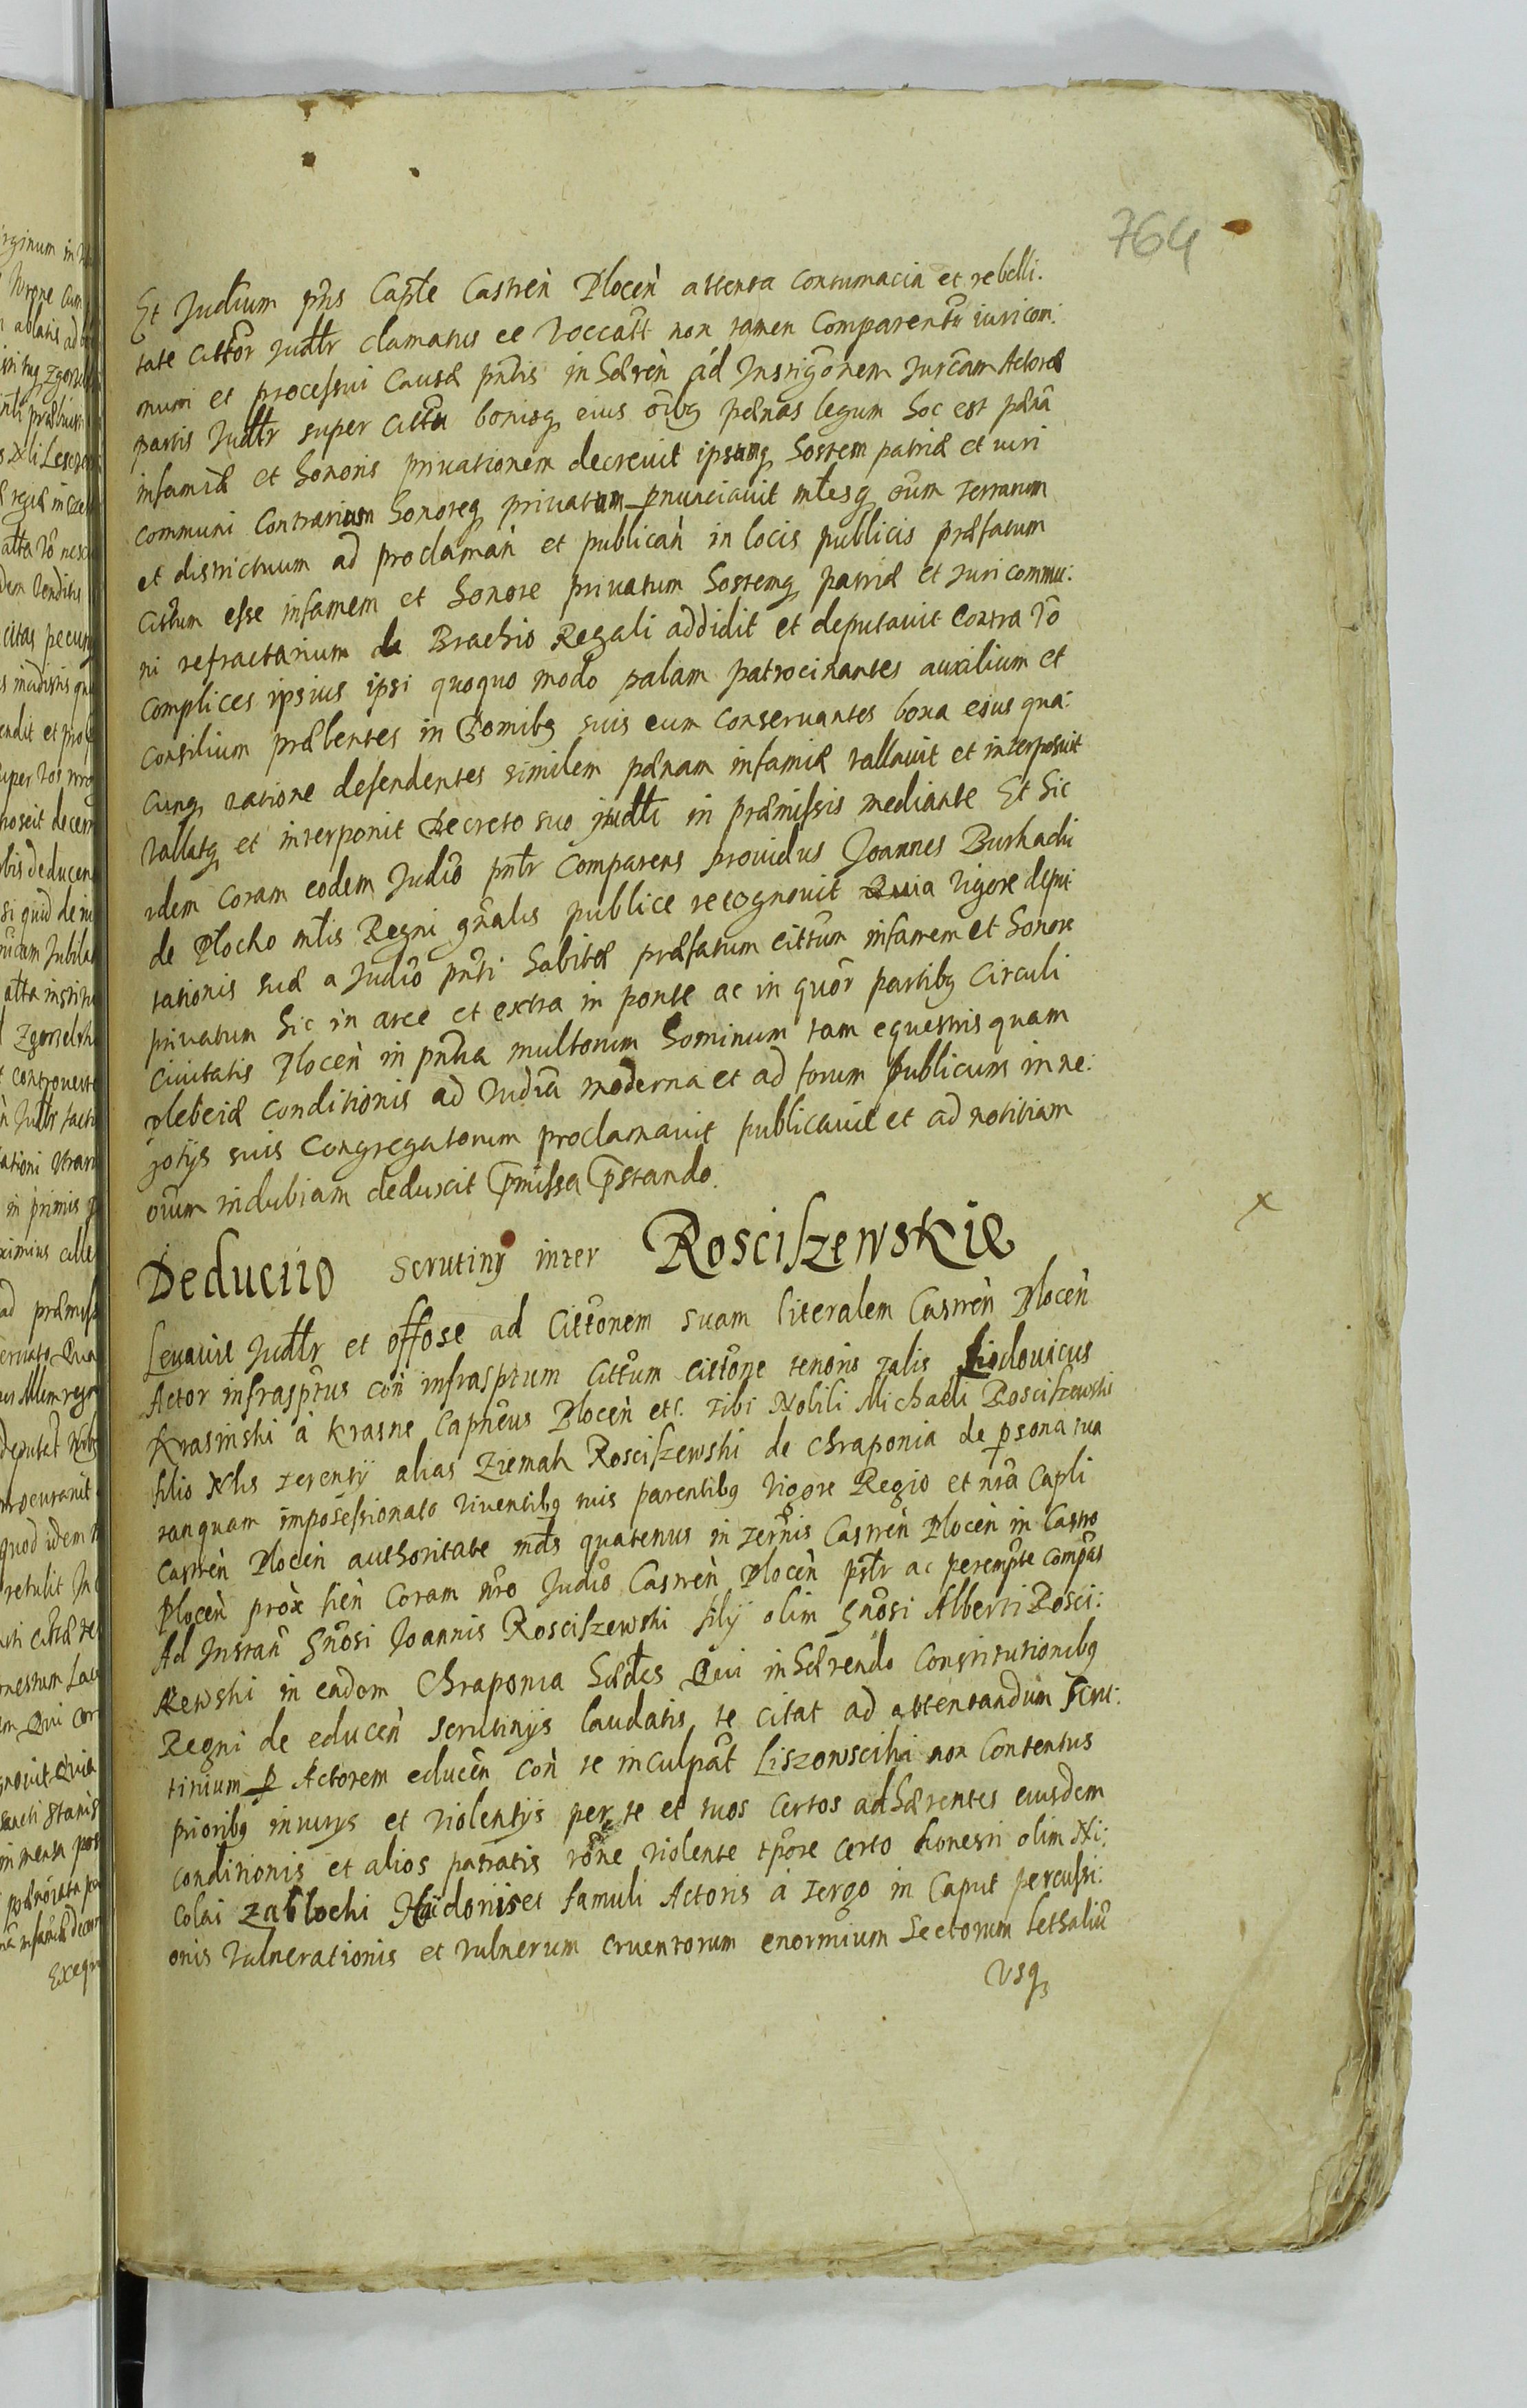 764
Et Judium pñs Capłe Castreñ Płoceñ attenta contumacia et rebelli:
tate cittõr Judłr clamatus ee voccatt non tamen comparentũ iuri com:
muni et processui causæ pñtis inhæreñ ad Instigõnem Juream Actoreæ
partis Judłr super cittu bonisq eius oĩbq pænas legum hoc est pænã
infamiæ et honoris priuationem decreuit ipsumq hostem patriæ et iuri
communi contrarium honoreq priuatum pnunciauit młesq oĩum terrarum
et districtuum ad proclamañ et publicañ in locis publicis præfatum
cittum esse infamem et honore priuatum hostemq patriæ et iuri commu:
ni refractarium de Brachio Regali addidit et deputauit contra võ
complices ipsius ipsi quoquo modo palam patrocinantes auxilium et
consilium præbentes in Domibq suis eum conseruantes bona eius qua:
cunq ratione defendentes similem pænam infamiæ vallauit et interposuit
vallatq et interponit Decreto suo judłi in præmissis mediante Et hic
idem coram eodem Judiõ pñtr comparens prouidus Joannes Burkadu
de Plocko młis Regni gñalis publice recognouit Quia vigore depu:
tationis suæ a Judiõ pñti habitæ præfatum cittum infamem et honore
priuatum hic in arce et extra in ponte ac in quõr partibq circuli
ciuitatis Płoceñ in pñtia multorum hominum tam equestris quam
plebeiæ conditionis ad Judia moderna et ad forum publicum in ne:
gotÿs suis congregatorum proclamauit publicauit et ad notitiam
oĩum indubiam deduxit pmissa pstando.
Deductio scrutinÿ inter Rosciszewskie
Leuauit Judłr et offose ad Cittõnem suam literalem Castreñ Płoceñ
Actor infrasptus coñ infrasptum cittum cittõne tenoris talis Liodouicus
Krasinski a Krasne Capñeus Płoceñ etc. Tibi Nobili Michaeli Rosciszewski
filio Nlis Terentÿ alias Ziemak Rosciszewski de Chraponia de psona tua
tanquam impossessionato viuentibq tuis parentibq vigore Regio et nrã Capłi
Castreñ Płoceñ authoritate mds quatenus in Termis Castreñ Płoceñ in Castro
Płoceñ prox fieñ coram nrõ Judiõ Castreñ Płoceñ psłr ac perempte compãs
Ad Instañ Gñosi Joannis Rosciszewski filÿ olim Gñosi Alberti Rosci:
szewski in eadem Chraponia hædes Qui inhærendo Constitutionibq
Regni de educeñ scrutinÿs laudatis te citat ad attentandum scru:
tinium p Actorem educeñ coñ te inculpãt Liszowscihi non contentus
prioribq iniurÿs et violentÿs per te et tuos certos adhærentes eiusdem
conditionis et alios patratis rõne violente tpõre certo honesti olim Ni:
colai Zablochi Haidonis et famuli Actoris a tergo in caput percussi:
onis vulnerationis et vulnerum cruentorum enormium sectorum lethaliũ
vsq
x